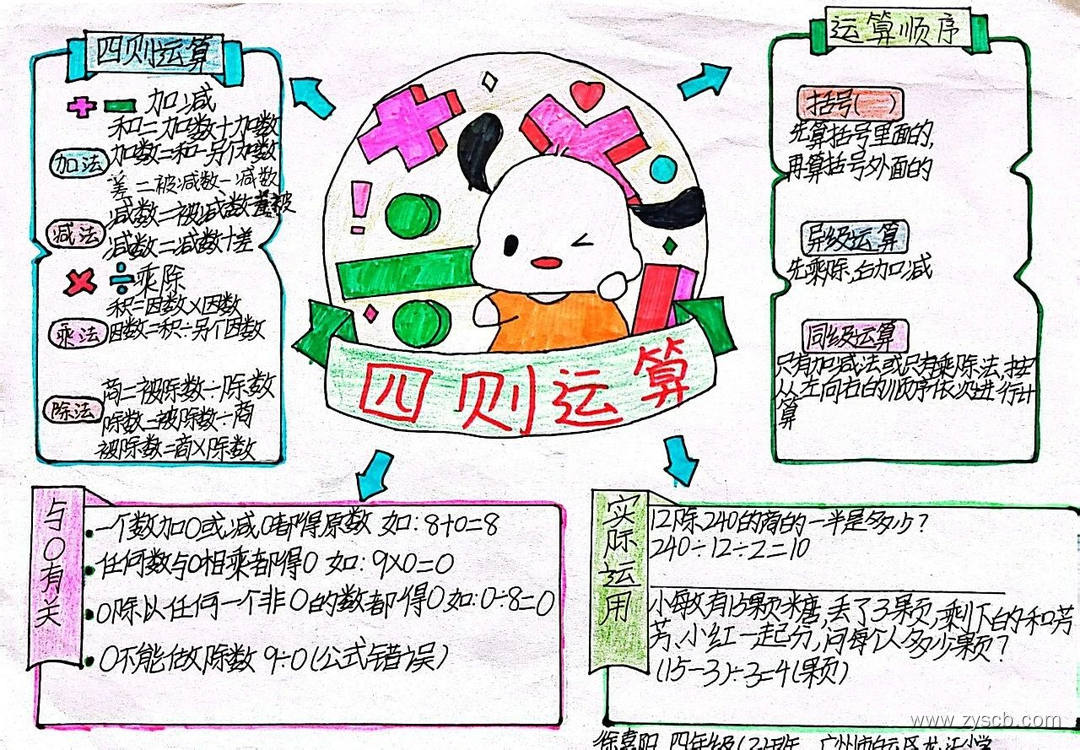 四则运算
加减
和=加数+加数
加法
加数=和-另个加数
差=被减数-减数
减数=被减数
减法
减数=减数+差
乘除
积=因数×因数
乘法
因数=积÷另个因数
商=被除数÷除数
除法
除数=被除数÷商
被除数=商×除数
四则运算
运算顺序
括号( )
先算括号里面的,
再算括号外面的
异级运算
先乘除,白加减
同级运算
只有加减法或只有乘除法,按
从左向右的顺序依次进行计
算
与0有关
一个数加0或减0都得原数 如:8+0=8
任何数与0相乘都得0 如:9×0=0
0除以任何一个非0的数都得0如:0÷8=0
0不能做除数 9÷0(公式错误)
实际运用
12除240的商的一半是多少?
240÷12÷2=10
小敏有15颗糖,丢了3颗,剩下的和芳
芳、小红一起分,问每个人多少颗?
(15-3)÷3=4(颗)
www.zyscb.com
四年级(2)班